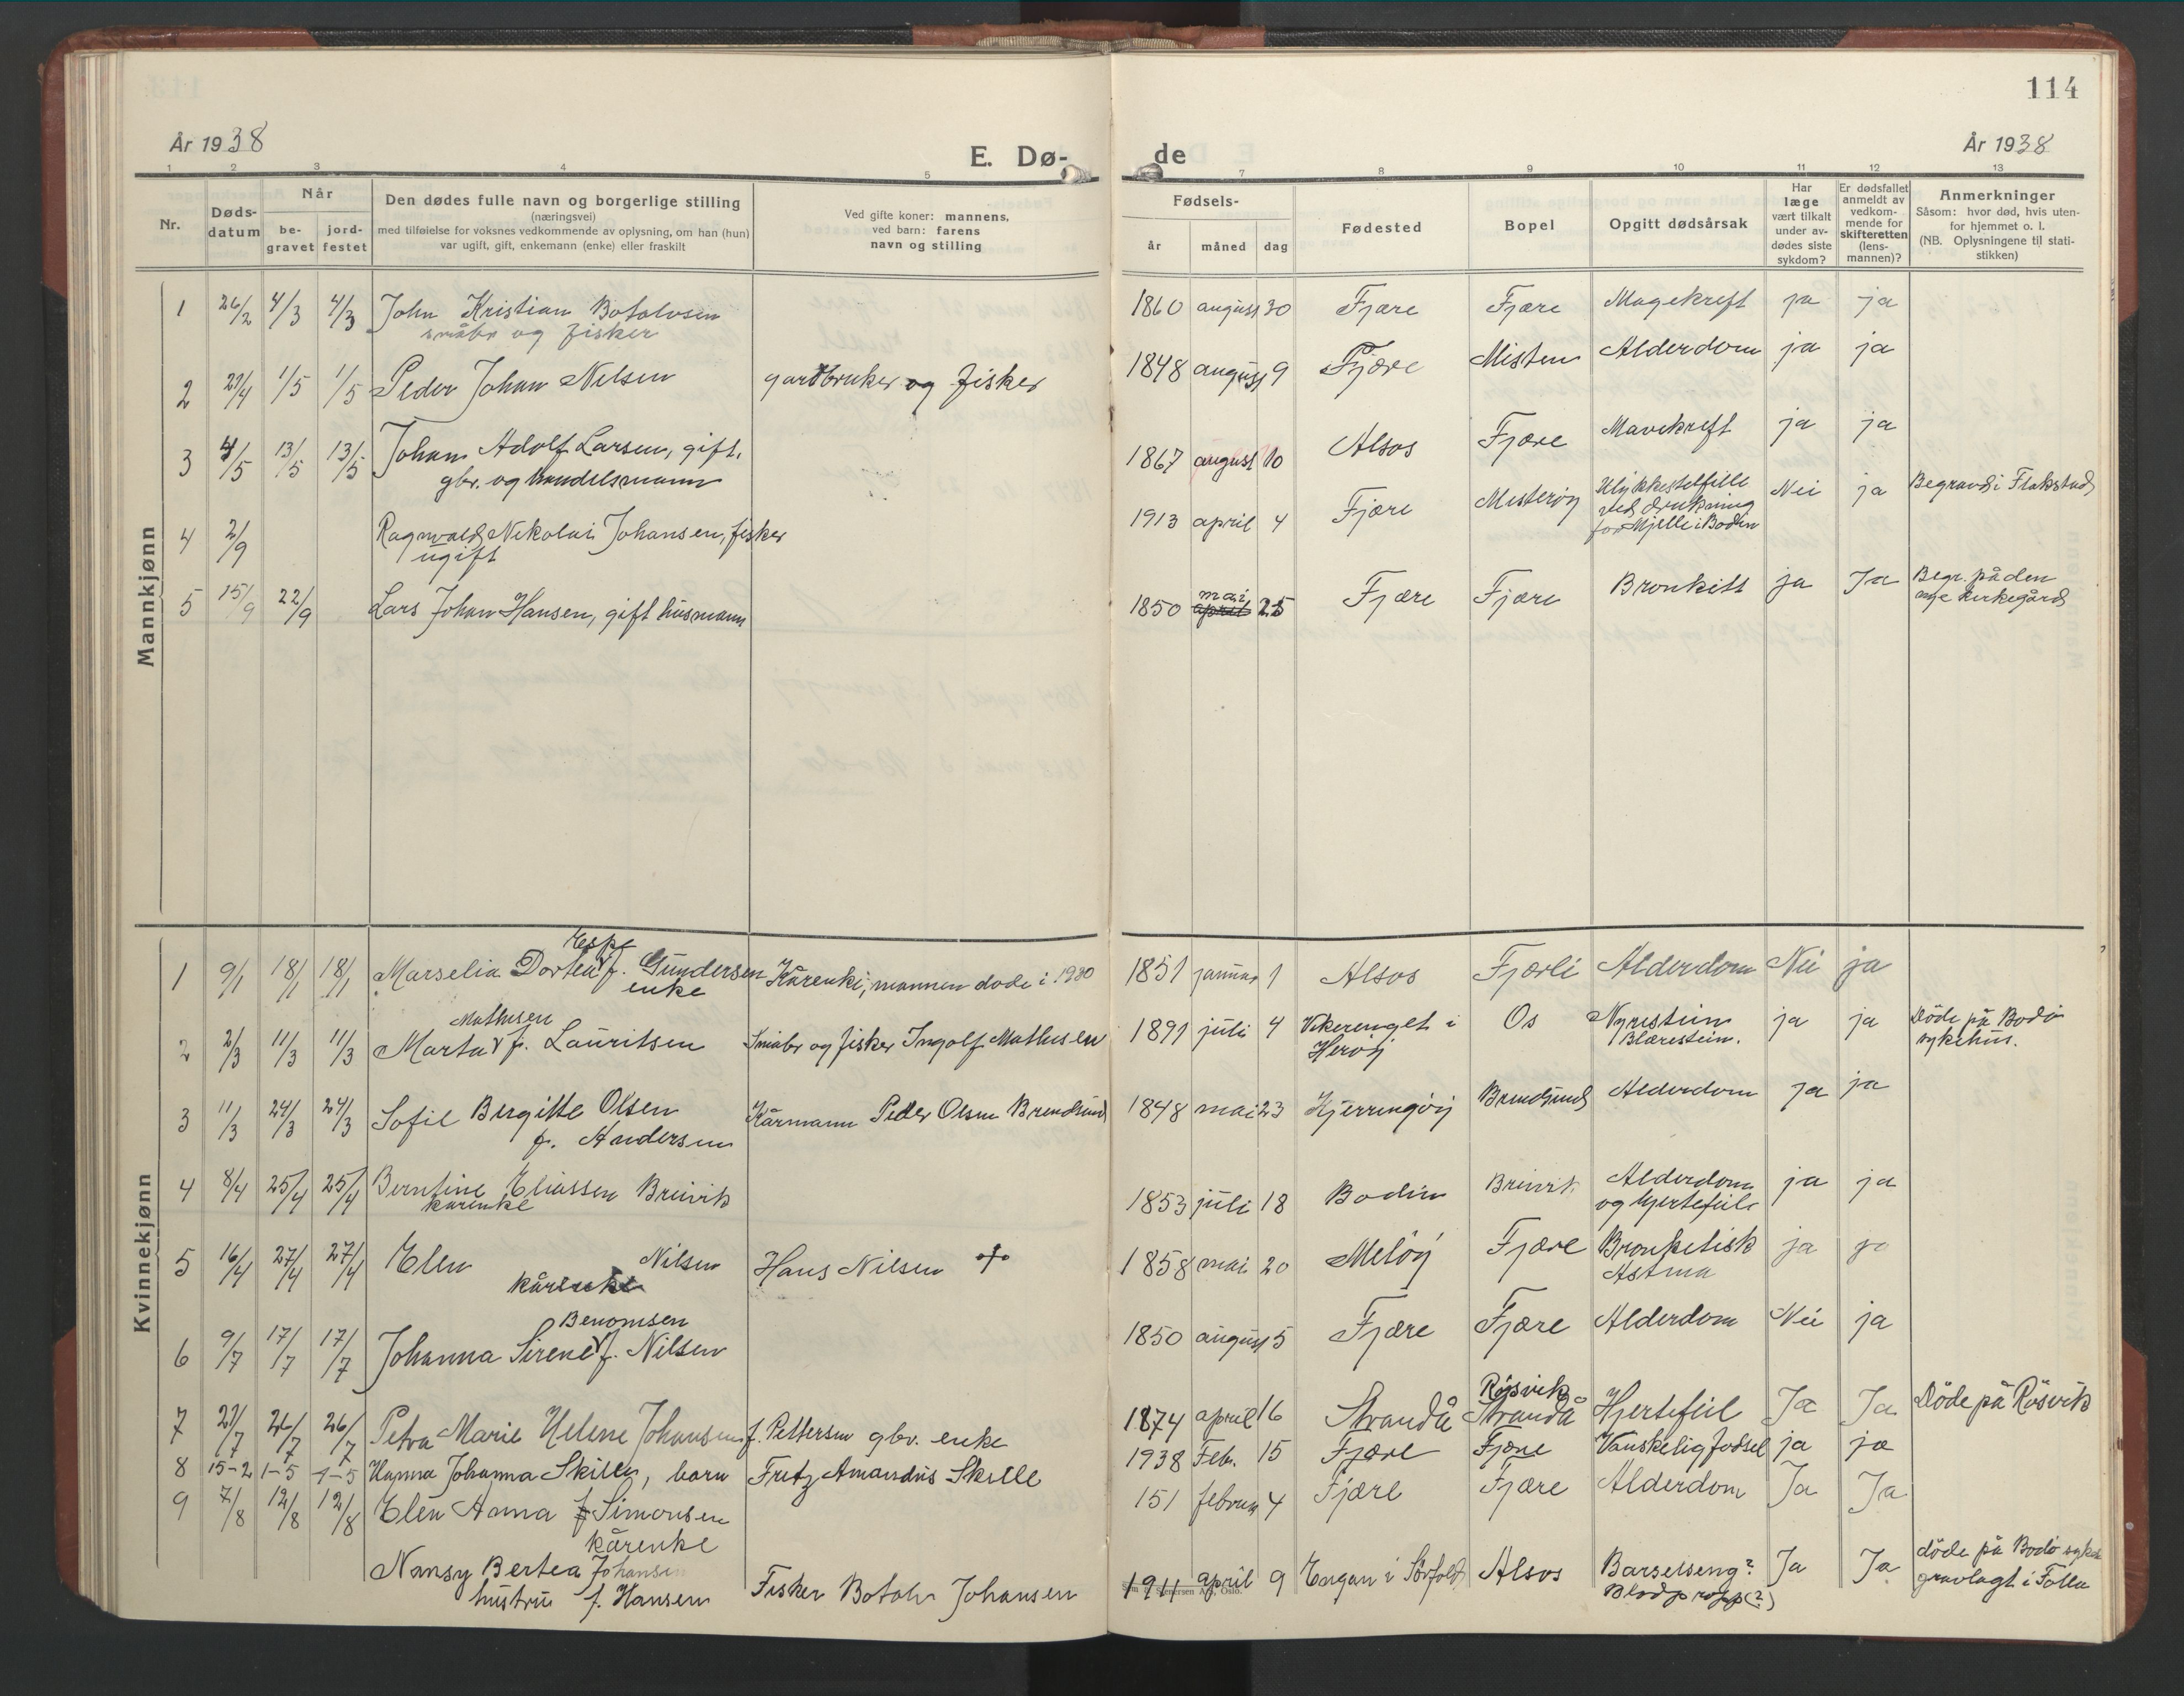 114
År 1938
E. Dø-
de
År 1938
1 2 3 4 5
7 8 9 10 11 12 13
Nr.
Døds-
datum
Når
be-
gravet
jord-
festet
Den dødes fulle navn og borgerlige stilling
(næringsvei)
med tilføielse for voksnes vedkommende av oplysning, om han (hun)
var ugift, gift, enkemann (enke) eller fraskilt
Ved gifte koner: mannens,
ved barn: farens
navn og stilling
Fødsels-
år måned dag
Fødested
Bopel
Opgitt dødsårsak
Har
læge
vært tilkalt
under av-
dødes siste
sykdom?
Er dødsfallet
anmeldt av
vedkom-
mende for
skifteretten
(lens-
mannen)?
Anmerkninger
Såsom: hvor død, hvis uten-
for hjemmet o. l.
(NB. Oplysningene til stati-
stikken)
Mannkjønn
1 26/2 4/3 4/3 John Kristian Botolvsen 1860 august 30 Fjære Fjære Magekreft ja ja
småbr og fisker
2 29/4 1/5 1/5 Peder Johan Nilsen gardbruker og fisker 1848 august 9 Fjære Misten Alderdom ja ja
3 4/5 13/5 13/5 Johan Adolf Larsen, gift, 1867 august 10 Alsos Fjære Mavekreft ja ja
gbr. og handelsmann
4 2/9 Ragnvald Nikolai Johansen, fisker 1913 april 4 Fjære Misterøy Ulykkestilfelle Nei ja Begravd i Flakstad
ugift
ved drukning
for Mjelle i Bodin
5 15/9 22/9 Lars Johan Hansen, gift husmann 1850 april 25 Fjære Fjære Bronkitt ja Ja Begr. på den
mai
nye kirkegård
Kvinnekjønn
Espe
1 9/1 18/1 18/1 Marselia Dortea f. Gundersen Kårenke, mannen døde i 1930 1851 januar 1 Alsos Fjærli Alderdom Nei ja
enke
Mathisen
2 2/3 11/3 11/3 Marta f. Lauritsen Småbr og fisker Ingolf Mathisen 1891 juli 4 Vikerenget i Os Nyrestein ja ja Døde på Bodø
Herøy
Blærestein.
sykehus.
3 11/3 24/3 24/3 Sofie Birgitte Olsen Kårmann Peder Olsen Brendsund 1848 mai 23 Kjerringøy Brendsund Alderdom ja ja
f. Andersen
4 8/4 25/4 25/4 Berntine Eliassen Breivik 1853 juli 18 Bodin Breivik Alderdom ja ja
kårenke
og hjertefeil
5 16/4 27/4 27/4 Elen Nilsen Hans Nilsen + 1858 mai 20 Meløy Fjære Bronkitisk ja ja
kårenke
Astma
Benomsen
6 9/7 17/7 17/7 Johanna Sirene f. Nilsen 1850 august 5 Fjære Fjære Alderdom Nei ja
Røsvik
7 21/7 26/7 26/7 Petra Marie Helene Johansen f. Pettersen gbr. enke 1874 april 16 Strandå Strandå Hjertefeil Ja Ja Døde på Røsvik
8 15-2 1-5 1-5 Hanna Johanna Skille, barn Fritz Amandus Skille 1938 Feb. 15 Fjære Fjære Vanskelig fødsel ja ja
9 7/8 12/8 12/8 Elen Anna f Simonsen 151 februar 4 Fjære Fjære Alderdom Ja Ja
kårenke
Nansy Bertea Johansen Fisker Botolv Johansen 1911 april 9 Engan i Sørfold Alsos Barselseng? Ja Ja døde på Bodø sykeh
hustru f. Hansen
Blodpropp (?)
gravlagt i Folla